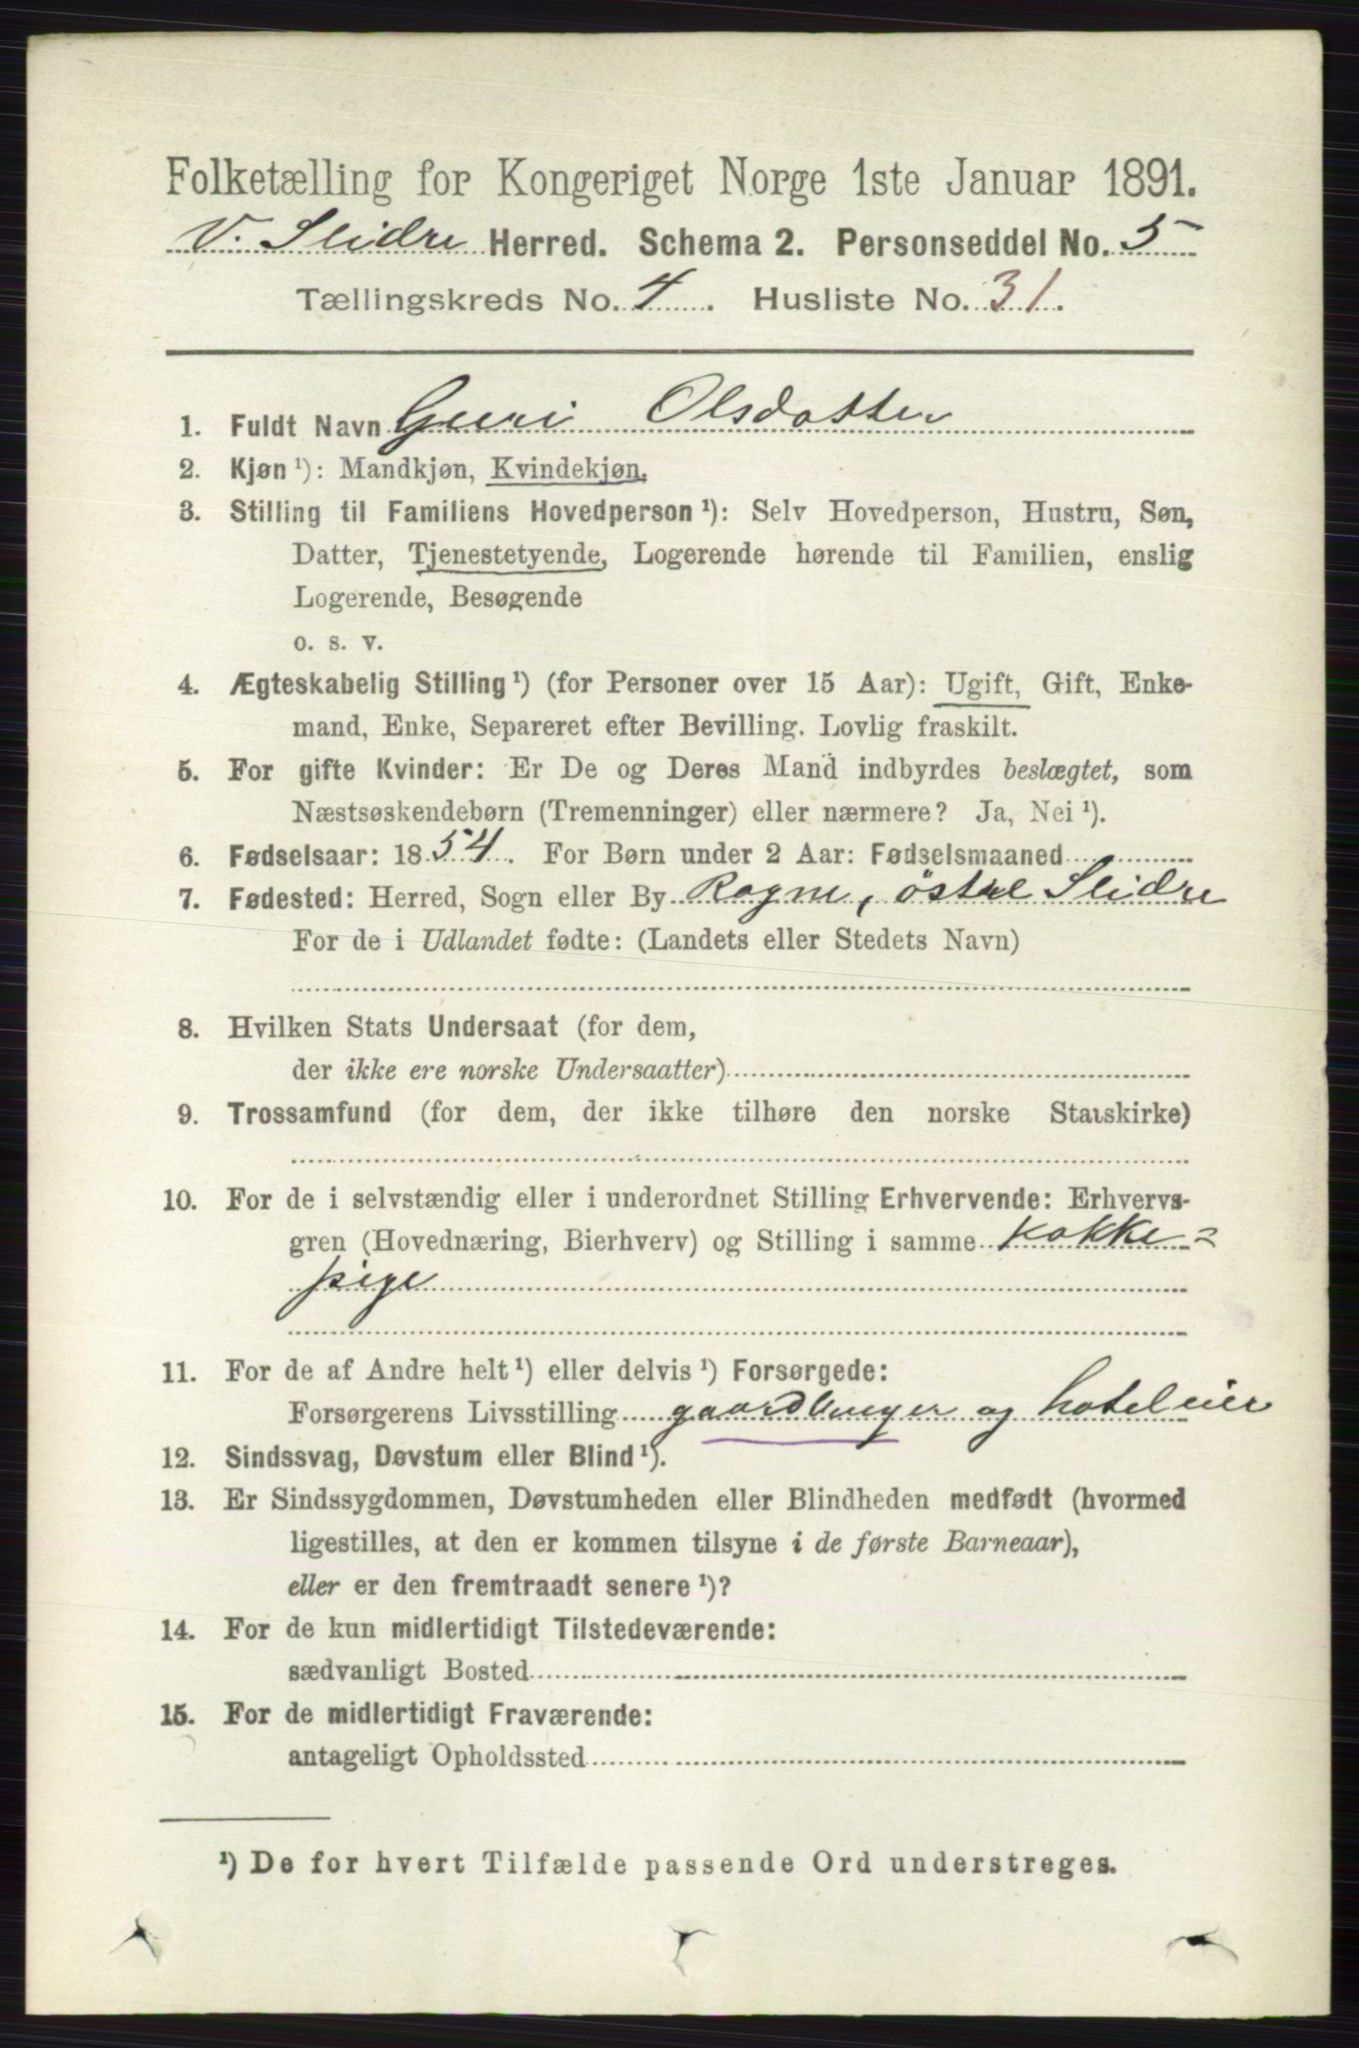 Folketælling for Kongeriget Norge 1ste Januar 1891.
V. Slidre Herred. Schema 2. Personseddel No. 5
Tællingskreds No. 4. Husliste No. 31.
1. Fuldt Navn Guri Olsdatter
2. Kjøn ¹): Mandkjøn, Kvindekjøn.
3. Stilling til Familiens Hovedperson ¹): Selv Hovedperson, Hustru, Søn,
Datter, Tjenestetyende, Logerende hørende til Familien, enslig
Logerende, Besøgende
o. s. v.
4. Ægteskabelig Stilling ¹) (for Personer over 15 Aar): Ugift, Gift, Enke-
mand, Enke, Separeret efter Bevilling. Lovlig fraskilt.
5. For gifte Kvinder: Er De og Deres Mand indbyrdes beslægtet, som
Næstsøskendebørn (Tremenninger) eller nærmere? Ja, Nei ¹).
6. Fødselsaar: 1854. For Børn under 2 Aar: Fødselsmaaned
7. Fødested: Herred, Sogn eller By Rogne, östre Slidre
For de i Udlandet fødte: (Landets eller Stedets Navn)
8. Hvilken Stats Undersaat (for dem,
der ikke ere norske Undersaatter)
9. Trossamfund (for dem, der ikke tilhøre den norske Statskirke)
10. For de i selvstændig eller i underordnet Stilling Erhvervende: Erhvervs-
gren (Hovednæring, Bierhverv) og Stilling i samme kokke=
pige
11. For de af Andre helt ¹) eller delvis ¹) Forsørgede:
Forsørgerens Livsstilling gaardbruger og hoteleier
12. Sindssvag, Døvstum eller Blind ¹).
13. Er Sindssygdommen, Døvstumheden eller Blindheden medfødt (hvormed
ligestilles, at den er kommen tilsyne i de første Barneaar),
eller er den fremtraadt senere ¹)?
14. For de kun midlertidigt Tilstedeværende:
sædvanligt Bosted
15. For de midlertidigt Fraværende:
antageligt Opholdssted
¹) De for hvert Tilfælde passende Ord understreges.